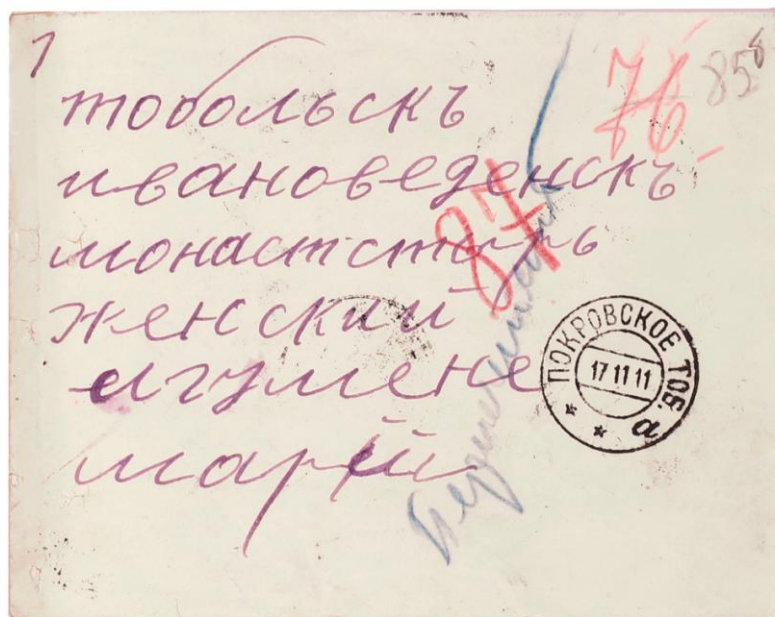 1
76
85⁸
тобольскъ
ивановеденскъ
87
монастстырь
женский
игумене
марѣи
ПОКРОВСКОЕ ТОБ.
17 11 11
а